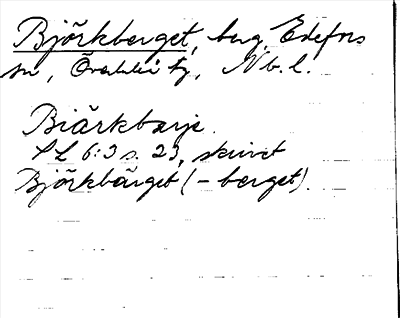 Björkberget, berg, Edefors
sn, Överluleå tg, Nb. l.
Biärkbärje.
SL 6:3 s. 23, skrivet
Björkbärget (-berget).